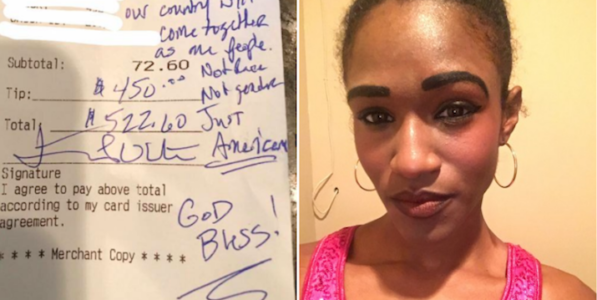 our country will
come together
as one people.
Subtotal: 72.60
Not race
Tip: $450.00
Not gender
Total $522.60 Just
American
Signature
I agree to pay above total
according to my card issuer
agreement.
GOD
Bless!
* * * * Merchant Copy * * * *